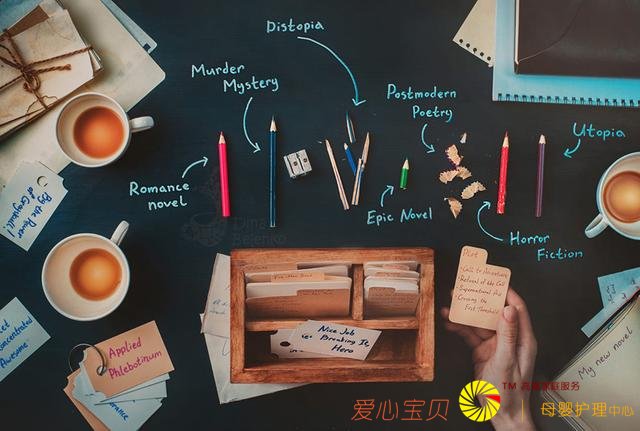 Distopia
Murder
Mystery
Postmodern
Poetry
Utopia
Romance
novel
Epic Novel
Horror
Fiction
By the Power
of Grayskull!
Dina
Belenko
Plot
Call to Adventure
Refusal of the Call
Supernatural Aid
Crossing the
First Threshold
Nice Job
Breaking It
Hero
Applied
Phlebotinum
Awesome
My new novel
TM 高端家庭服务
爱心宝贝 | 母婴护理中心